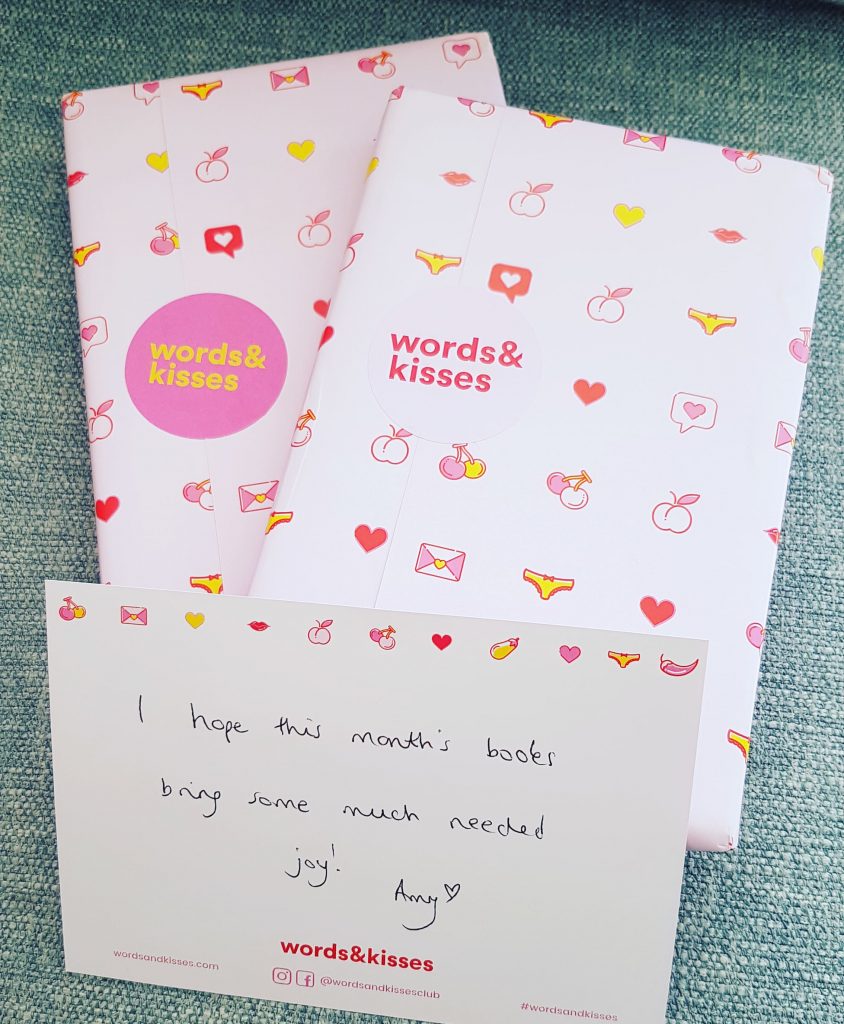 words&
kisses
words&
kisses
I hope this month's books
bring some much needed
joy!
Amy
words&kisses
wordsandkisses.com
@wordsandkissesclub
#wordsandkisses